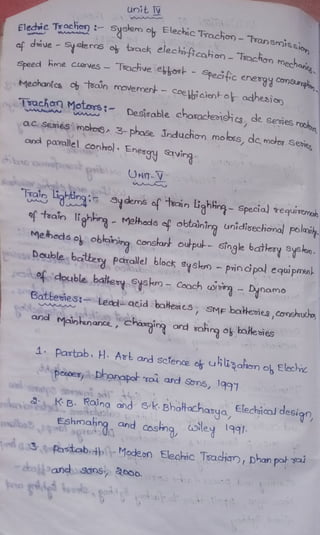 Unit IV
Electric Traction :- System of Electric Traction - Transmission
of drive - Systems of track electrification - Traction mechanics -
Speed time curves - Tractive effort - Specific energy consumption,
Mechanics of train movement - coefficient of adhesion
Traction Motors:- Desirable characteristics, dc series motors,
a.c series motors, 3-phase Induction motors, dc motor series
and parallel control. Energy Saving.
Unit-V
Train Lighting:- Systems of train lighting - Special requirements
of train lighting - Methods of obtaining unidirectional polarity
Methods of obtaining constant output - Single battery system.
Double battery parallel block system - principal equipment
of double battery system - Coach wiring - Dynamo
Batteries:- Lead-acid batteries, SMF batteries, construction
and Maintenance, charging and rating of batteries
1. Partab. H. Art and science of Utilization of Electric
power, Dhanapat rai and Sons, 1997
2. K.B. Raina and S.K. Bhattacharya, Electrical design,
Estimating and costing, Wiley 1991.
3. Partab.H - Modern Electric Traction, Dhan pat rai
and sons, 2000.